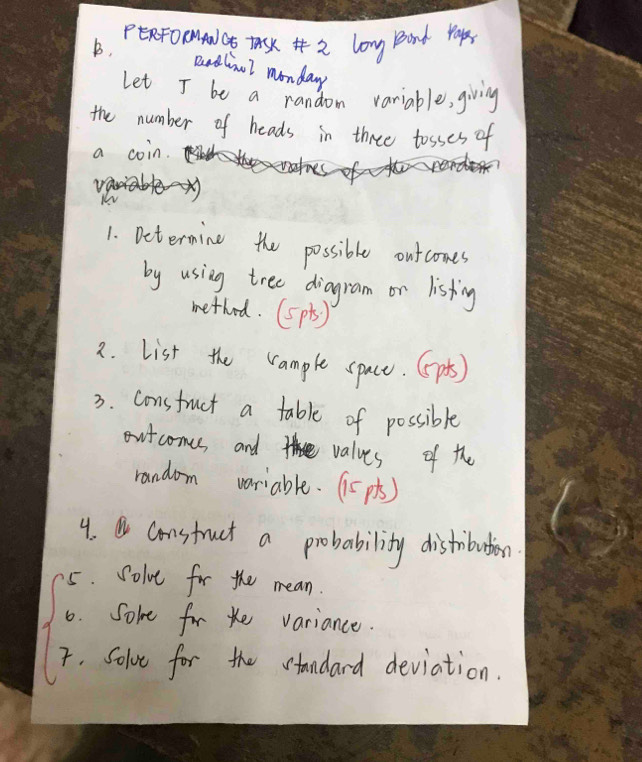 PERFORMANCE TASK # 2 Long Bond Paper
B.
Deadline: Monday
Let T be a random variable, giving
the number of heads in three tosses of
a coin. the values of the random
variable X)
1. Determine the possible outcomes
by using tree diagram or listing
method. (5 pts.)
2. List the sample space. (5 pts)
3. Construct a table of possible
outcomes and the values of the
random variable. (15 pts)
4. Construct a probability distribution.
5. Solve for the mean.
6. Solve for the variance.
7. Solve for the standard deviation.